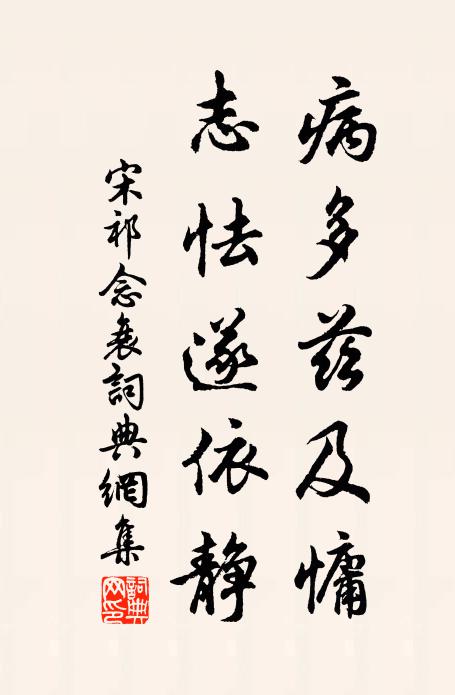 病多茲及慵
志怯遂依靜
宋祁念衰詞典網集
詞典網印